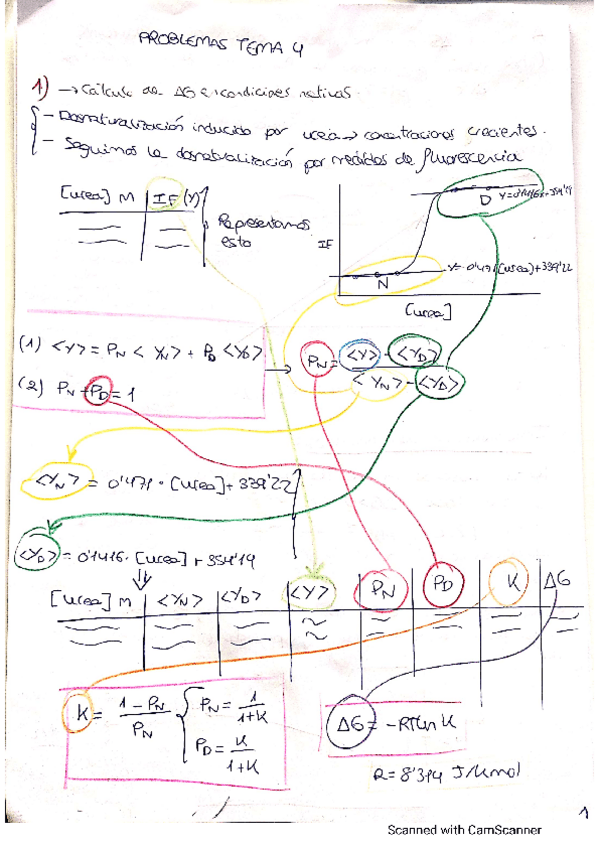 PROBLEMAS TEMA 4
1) → Cálculo de ΔG en condiciones nativas.
- Desnaturalización inducida por urea → concentraciones crecientes.
- Seguimos la desnaturalización por medidas de fluorescencia
[urea] M IF (Y)
Representamos
esto
IF
D Y=0'1416x+354'19
N Y=0'471[urea]+339'22
[urea]
(1) <Y> = PN <YN> + PD <YD>
(2) PN + PD = 1
→ PN = <Y> - <YD>
<YN> - <YD>
<YN> = 0'471 · [urea] + 339'22
<YD> = 0'1416 · [urea] + 354'19
[urea] M <YN> <YD> <Y> PN PD K ΔG
K = 1 - PN
PN
PN = 1
1+K
PD = K
1+K
ΔG = -RTLn K
R = 8'314 J/Kmol
1
Scanned with CamScanner